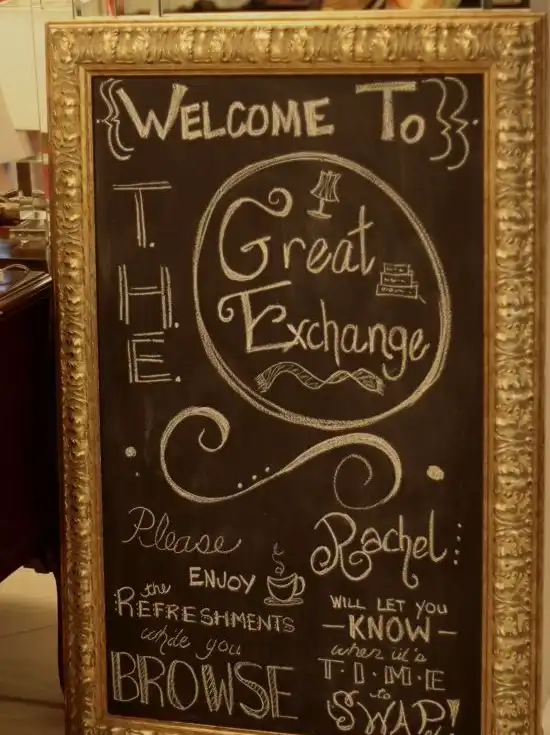 WELCOME TO
T.H.E.
Great
Exchange
Please
ENJOY
the
REFRESHMENTS
while you
BROWSE
Rachel
WILL LET YOU
-KNOW-
when it's
T·I·M·E
to
SWAP!